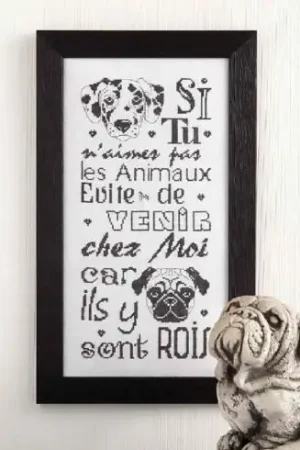 Si
Tu
n'aimes pas
les Animaux
Evite de
VENIR
chez Moi
car
ils y
sont ROIS